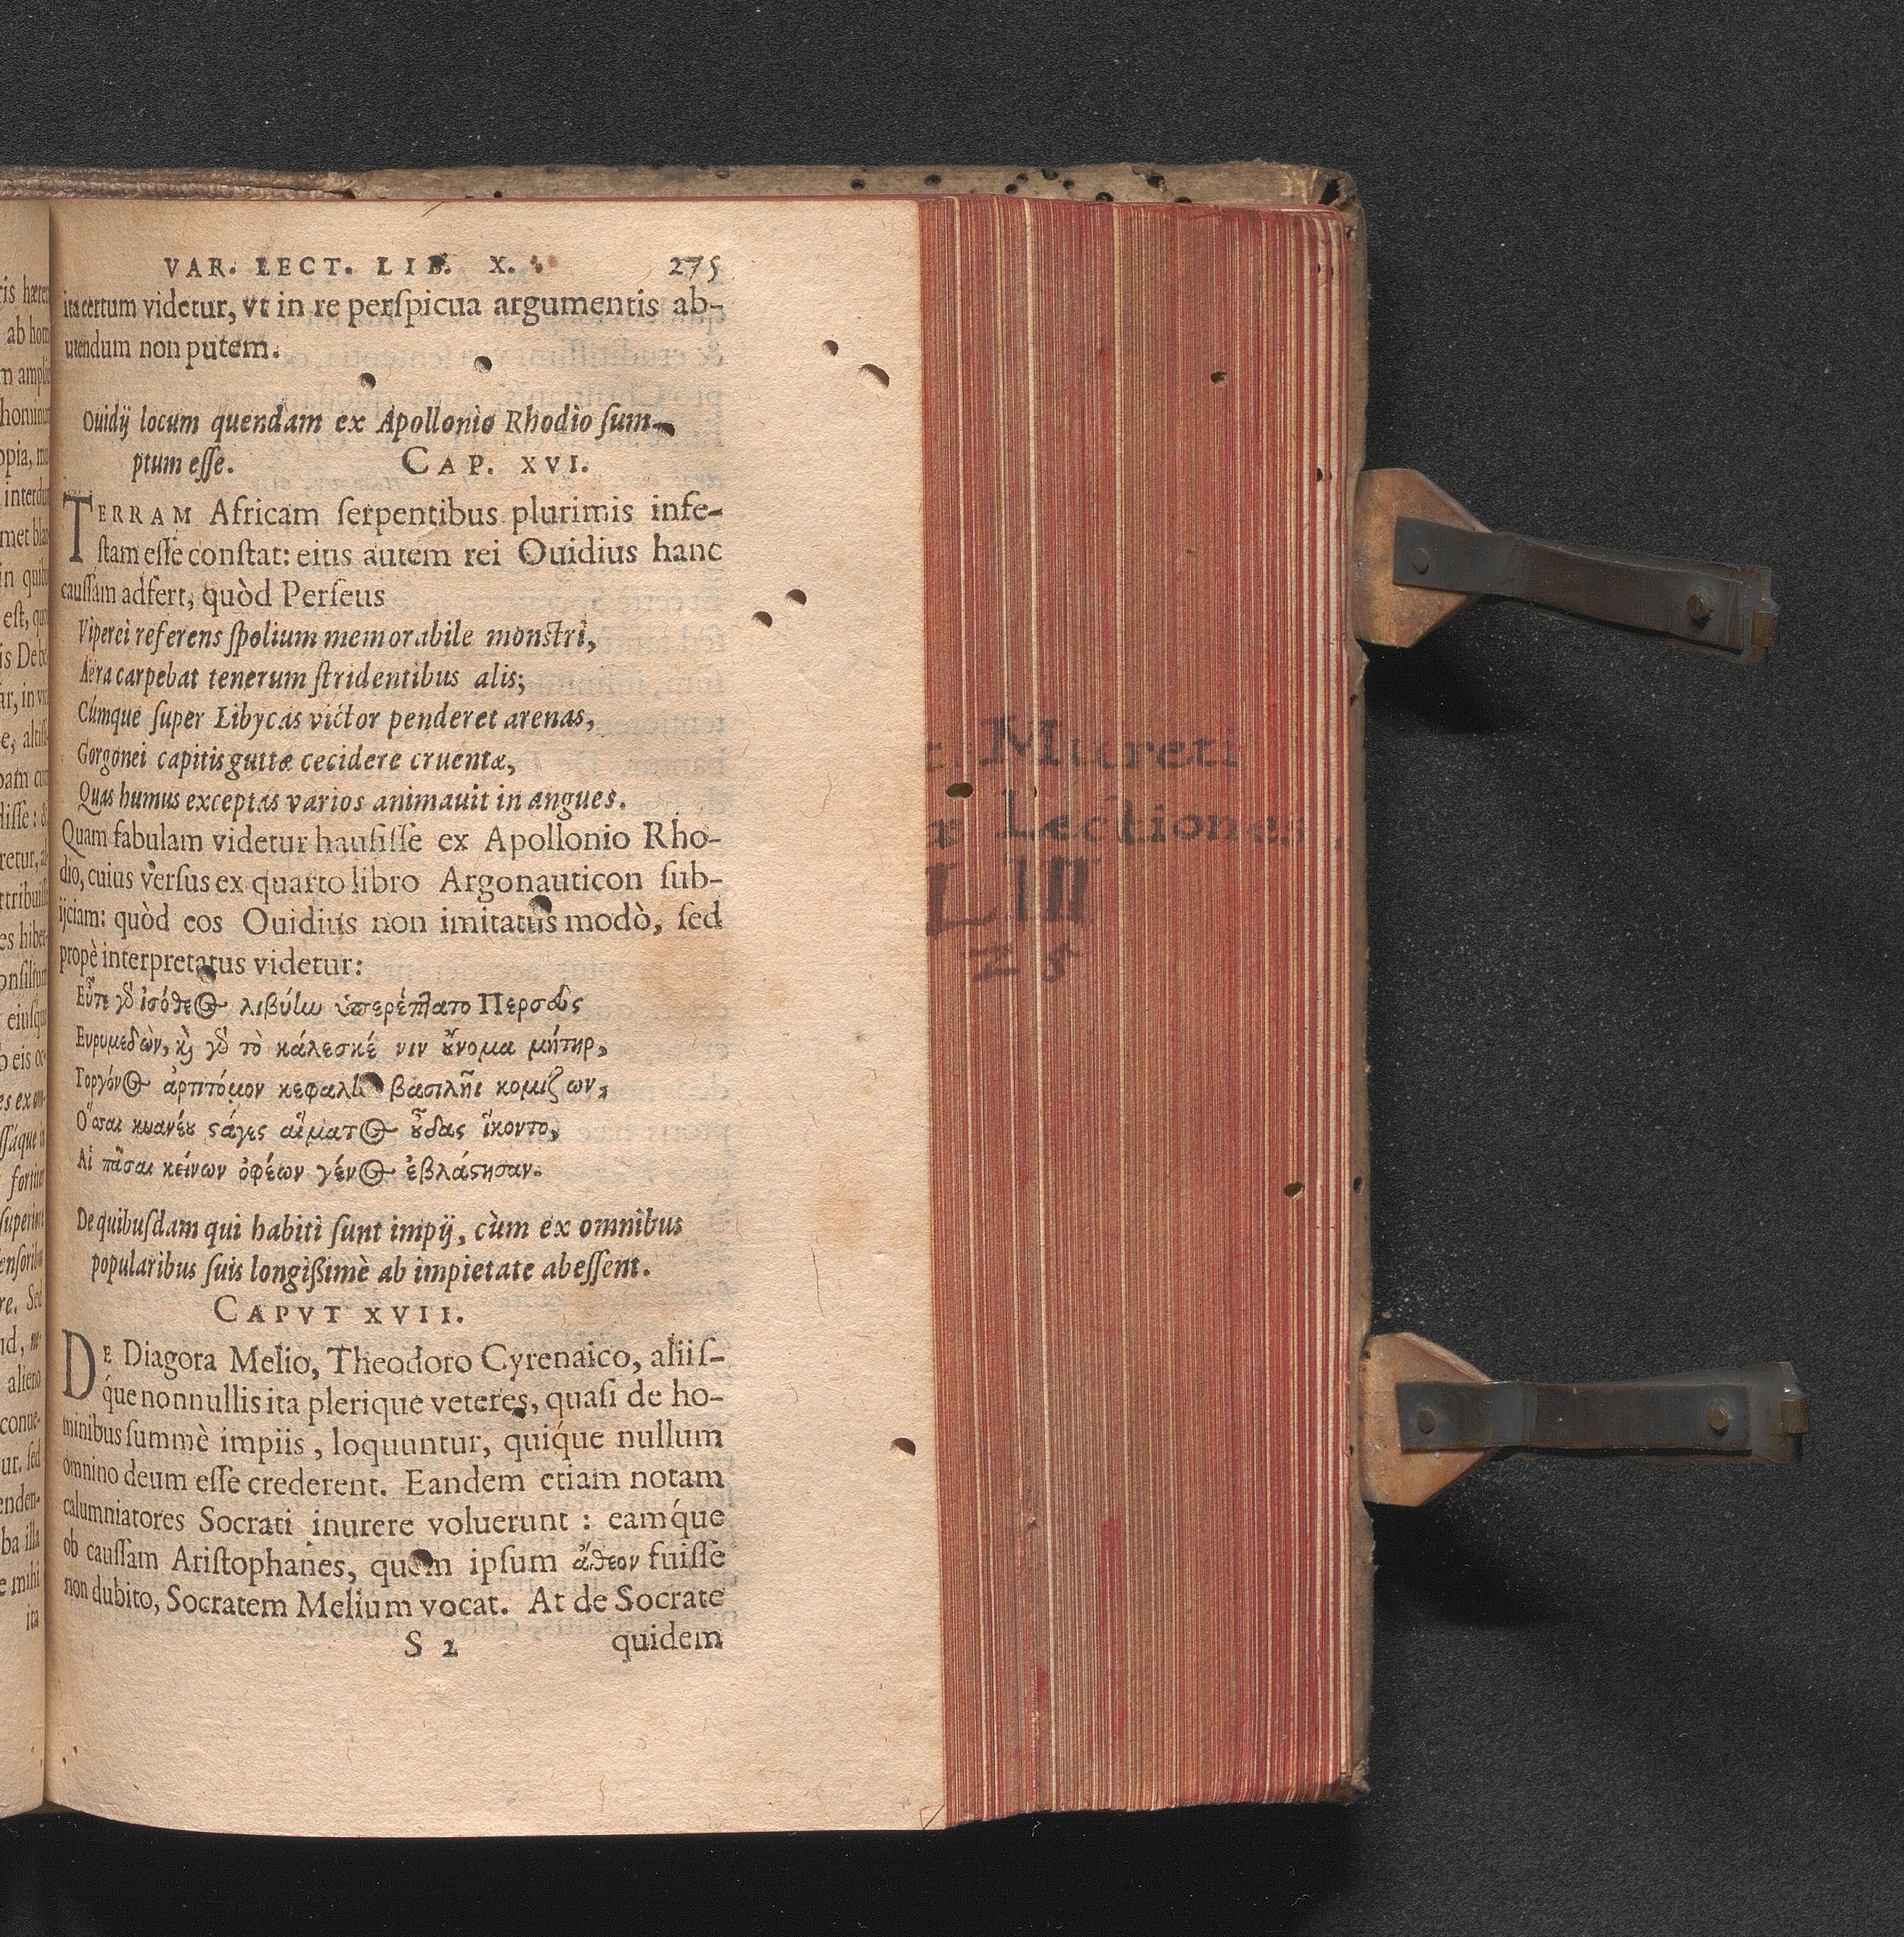 VAR. LECT. LIB. X. 275
ita certum videtur, vt in re perſpicua argumentis ab-
utendum non putem.
Ouidij locum quendam ex Apollonio Rhodio ſum-
ptum eſſe. CAP. XVI.
TERRAM Africam ſerpentibus plurimis infe-
ſtam eſſe conſtat: eius autem rei Ouidius hanc
cauſſam adfert, quòd Perſeus
Viperei referens ſpolium memorabile monſtri,
Aëra carpebat tenerum ſtridentibus alis;
Cúmque ſuper Libycas victor penderet arenas,
Gorgonei capitis guttæ cecidere cruentæ,
Quas humus exceptas varios animauit in angues.
Quam fabulam videtur hauſiſſe ex Apollonio Rho-
dio, cuius verſus ex quarto libro Argonauticon ſub-
ijciam: quòd eos Ouidius non imitatus modò, ſed
propè interpretatus videtur:
Εὖτε γὸ ἰσόθεος λιβύίω ὑπερέπλατο Περσδὺς
Ευρυμεδὼν, κỳ γὸ τὸ κάλεσκέ νιν ȣ̓́νομα μήτηρ,
Γοργόνος ἀρτιτόμον κεφαλί βασιλῆι κομίζων,
Ὅσσαι κυανέȣ ϛάγες αἵματος ȣ̓͂δας ἵκοντο,
Αἱ πᾶσαι κείνων ὀφέων γένος ἐβλάϛησαν.
De quibuſdam qui habiti ſunt impij, cùm ex omnibus
popularibus ſuis longißimè ab impietate abeſſent.
CAPVT XVII.
DE Diagora Melio, Theodoro Cyrenaico, aliiſ-
q́ue nonnullis ita plerique veteres, quaſi de ho-
minibus ſummè impiis, loquuntur, quiq́ue nullum
omnino deum eſſe crederent. Eandem etiam notam
calumniatores Socrati inurere voluerunt : eamq́ue
ob cauſſam Ariſtophanes, quem ipſum ἄθεον fuiſſe
non dubito, Socratem Melium vocat. At de Socrate
S 2 quidem
Mureti
Lectiones
L III
25